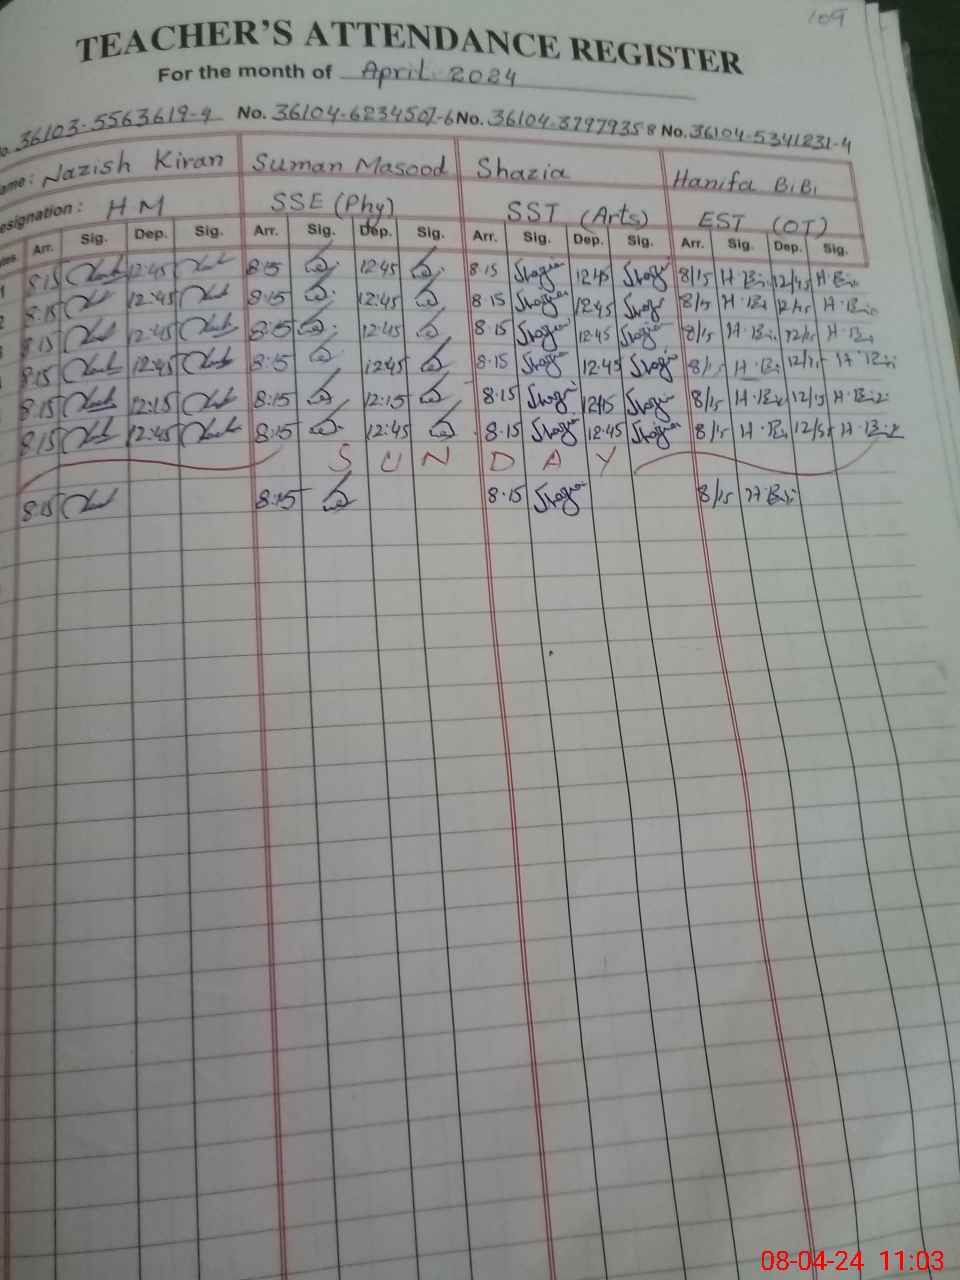 109
TEACHER'S ATTENDANCE REGISTER
For the month of April 2024
36103-5563619-4 No. 36104-6234507-6 No. 36104-3797935 8 No. 36104-5341231-4
ame: Nazish Kiran Suman Masood Shazia Hanifa BiBi
esignation: HM SSE (Phy) SST (Arts) EST (OT)
Arr. Sig. Dep. Sig. Arr. Sig. Dep. Sig. Arr. Sig. Dep. Sig. Arr. Sig. Dep. Sig.
8:15 12:45 8:15 12:45 8:15 Shazia 12:45 Shazia 8/15 H.Bi 12/45 H.Bi
8:15 12:45 8:15 12:45 8:15 Shazia 12:45 Shazia 8/15 H.Bi H.Bi
8:15 12:45 8:15 12:45 8:15 Shazia 12:45 Shazia 8/15 H.Bi H.Bi
8:15 12:45 8:15 12:45 8:15 Shazia 12:45 Shazia 8/15 H.Bi H.Bi
8:15 12:15 8:15 12:15 8:15 Shazia 12:15 Shazia 8/15 H.Bi 12/15 H.Bi
8:15 12:45 8:15 12:45 8:15 Shazia 12:45 Shazia 8/15 H.Bi H.Bi
SUNDAY
8:15 8:15 8:15 Shazia 8/15 H.Bi
08-04-24 11:03